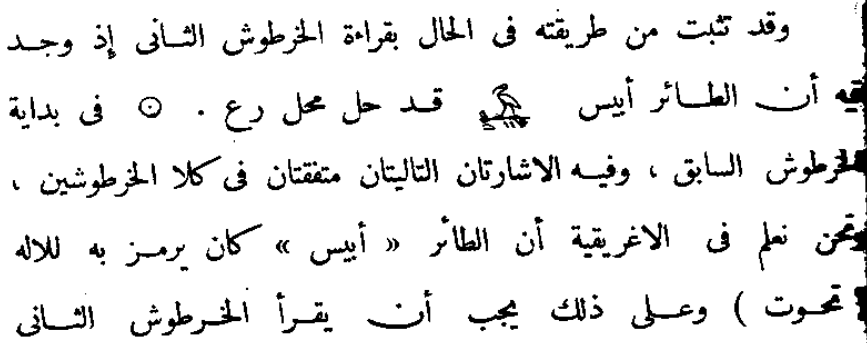 وقد تثبت من طريقته فى الحال بقراءة الخرطوش الثانى إذ وجد
فيه أن الطائر أبيس قد حل محل رع . ☉ فى بداية
الخرطوش السابق ، وفيه الاشارتان التاليتان متفقتان فى كلا الخرطوشين ،
ونحن نعلم فى الاغريقية أن الطائر « أبيس » كان يرمز به للاله
تحوت ) وعلى ذلك يجب أن يقرأ الخرطوش الثانى